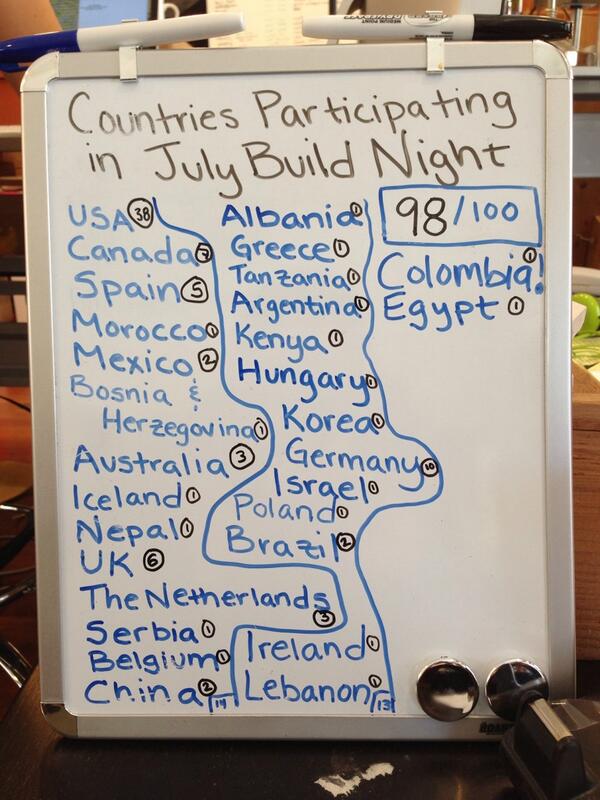 MEDIUM POINT
Countries Participating
in July Build Night
USA 38
Canada 7
Spain 5
Morocco 1
Mexico 2
Bosnia &
Herzegovina 1
Australia 3
Iceland 1
Nepal 1
UK 6
The Netherlands
3
Serbia 1
Belgium 1
China 2 14
Albania 1
Greece 1
Tanzania 1
Argentina 1
Kenya 1
Hungary 1
Korea 1
Germany 10
Israel 1
Poland 1
Brazil 2
Ireland 1
Lebanon 1 13
98/100
Colombia! 1
Egypt 1